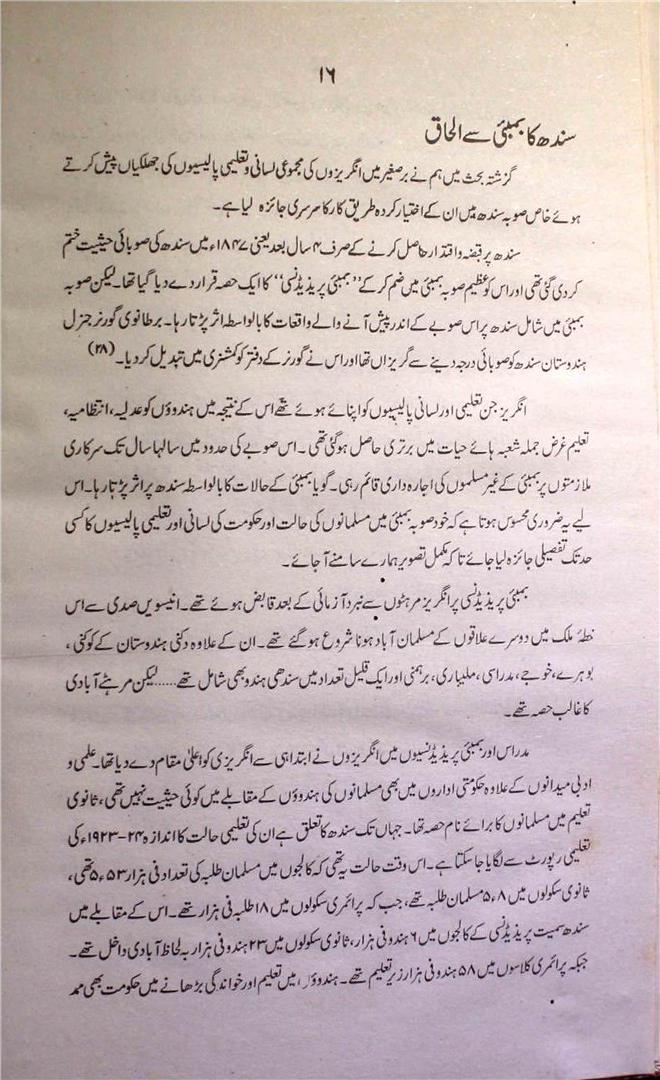 ۱۶
سندھ کا بمبئی سے الحاق
گزشتہ بحث میں ہم نے برصغیر میں انگریزوں کی مجموعی لسانی و تعلیمی پالیسیوں کی جھلکیاں پیش کرتے
ہوئے خاص صوبہ سندھ میں ان کے اختیار کردہ طریق کار کا سرسری جائزہ لیا ہے۔
سندھ پر قبضہ و اقتدار حاصل کرنے کے صرف ۴ سال بعد یعنی ۱۸۴۷ء میں سندھ کی صوبائی حیثیت ختم
کر دی گئی تھی اور اس کو عظیم صوبہ بمبئی میں ضم کر کے ”بمبئی پریذیڈنسی“ کا ایک حصہ قرار دے دیا گیا تھا۔ لیکن صوبہ
بمبئی میں شامل سندھ پر اس صوبے کے اندر پیش آنے والے واقعات کا بالواسطہ اثر پڑتا رہا۔ برطانوی گورنر جنرل
ہندوستان سندھ کو صوبائی درجہ دینے سے گریزاں تھا اور اس نے گورنر کے دفتر کو کمشنری میں تبدیل کر دیا۔ (۲۸)
انگریز جن تعلیمی اور لسانی پالیسیوں کو اپنائے ہوئے تھے اس کے نتیجہ میں ہندوؤں کو عدلیہ، انتظامیہ،
تعلیم غرض جملہ شعبہ ہائے حیات میں برتری حاصل ہو گئی تھی۔ اس صوبے کی حدود میں سالہا سال تک سرکاری
ملازمتوں پر بمبئی کے غیر مسلموں کی اجارہ داری قائم رہی۔ گویا بمبئی کے حالات کا بالواسطہ سندھ پر اثر پڑتا رہا۔ اس
لیے یہ ضروری محسوس ہوتا ہے کہ خود صوبہ بمبئی میں مسلمانوں کی حالت اور حکومت کی لسانی اور تعلیمی پالیسیوں کا کسی
حد تک تفصیلی جائزہ لیا جائے تاکہ مکمل تصویر ہمارے سامنے آ جائے۔
بمبئی پریذیڈنسی پر انگریز مرہٹوں سے نبرد آزمائی کے بعد قابض ہوئے تھے۔ انیسویں صدی سے اس
خطۂ ملک میں دوسرے علاقوں کے مسلمان آباد ہونا شروع ہو گئے تھے۔ ان کے علاوہ دکنی ہندوستان کے کوکنی،
بوہرے، خوجے، مدراسی، ملیباری، برہمنی اور ایک قلیل تعداد میں سندھی ہندو بھی شامل تھے ...... لیکن مرہٹے آبادی
کا غالب حصہ تھے۔
مدراس اور بمبئی پریذیڈنسیوں میں انگریزوں نے ابتدا ہی سے انگریزی کو اعلیٰ مقام دے دیا تھا۔ علمی و
ادبی میدانوں کے علاوہ حکومتی اداروں میں بھی مسلمانوں کی ہندوؤں کے مقابلے میں کوئی حیثیت نہیں تھی، ثانوی
تعلیم میں مسلمانوں کا برائے نام حصہ تھا۔ جہاں تک سندھ کا تعلق ہے ان کی تعلیمی حالت کا اندازہ ۲۴-۱۹۲۳ء کی
تعلیمی رپورٹ سے لگایا جا سکتا ہے۔ اس وقت حالت یہ تھی کہ کالجوں میں مسلمان طلبہ کی تعداد فی ہزار ۵۳ء۵ تھی،
ثانوی سکولوں میں ۸ء۵ مسلمان طلبہ تھے، جب کہ پرائمری سکولوں میں ۱۸ طلبہ فی ہزار تھے۔ اس کے مقابلے میں
سندھ سمیت پریذیڈنسی کے کالجوں میں ۶ ہندو فی ہزار، ثانوی سکولوں میں ۲۳ ہندو فی ہزار بہ لحاظ آبادی داخل تھے۔
جبکہ پرائمری کلاسوں میں ۵۸ ہندو فی ہزار زیر تعلیم تھے۔ ہندوؤں میں تعلیم اور خواندگی بڑھانے میں حکومت بھی ممد